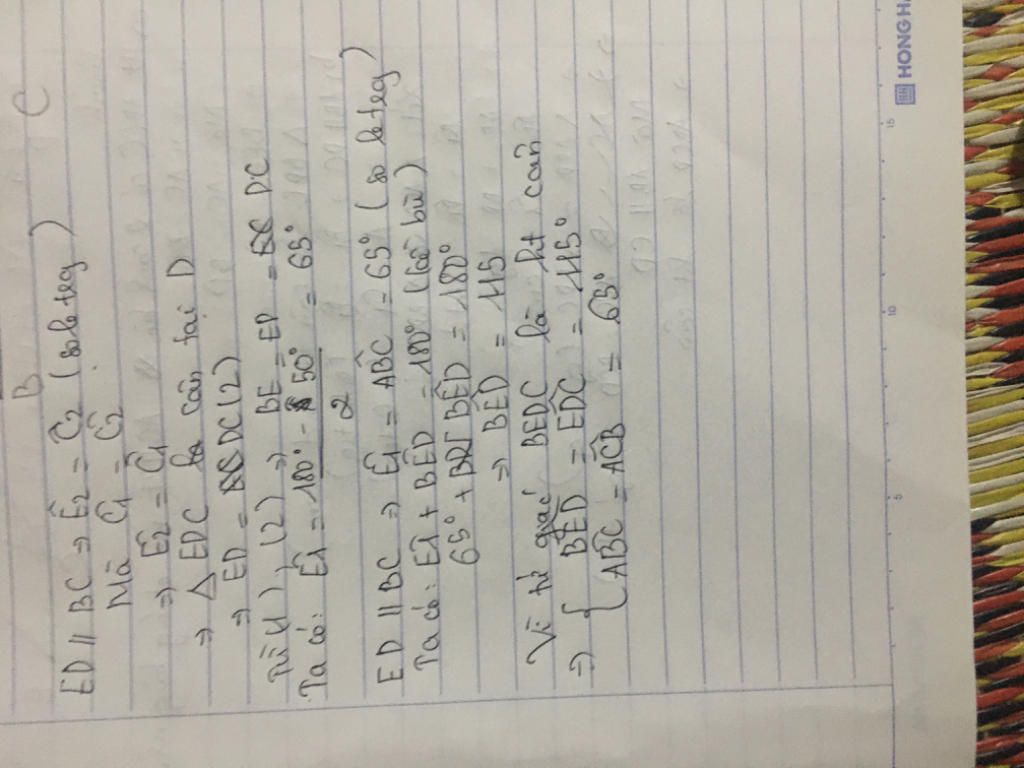 B C
ED // BC ⇒ Ê2 = Ĉ2 (soleteg)
Mà Ĉ1 = Ĉ2
⇒ Ê2 = Ĉ1
⇒ Δ EDC là cân tại D
⇒ ED = DC (2)
Từ (1), (2) ⇒ BE = ED = DC
Ta có: Ê1 = 180° - 50° / 2 = 65°
ED // BC ⇒ Ê1 = ABC = 65° (so le teg)
Ta có: Ê1 + BED = 180° (kề bù)
65° + BED = 180°
⇒ BED = 115
Vì tứ giác BEDC là ht cân
⇒ { BED = EDC = 115°
ABC = ACB = 65°
5 10 15
HONG HA